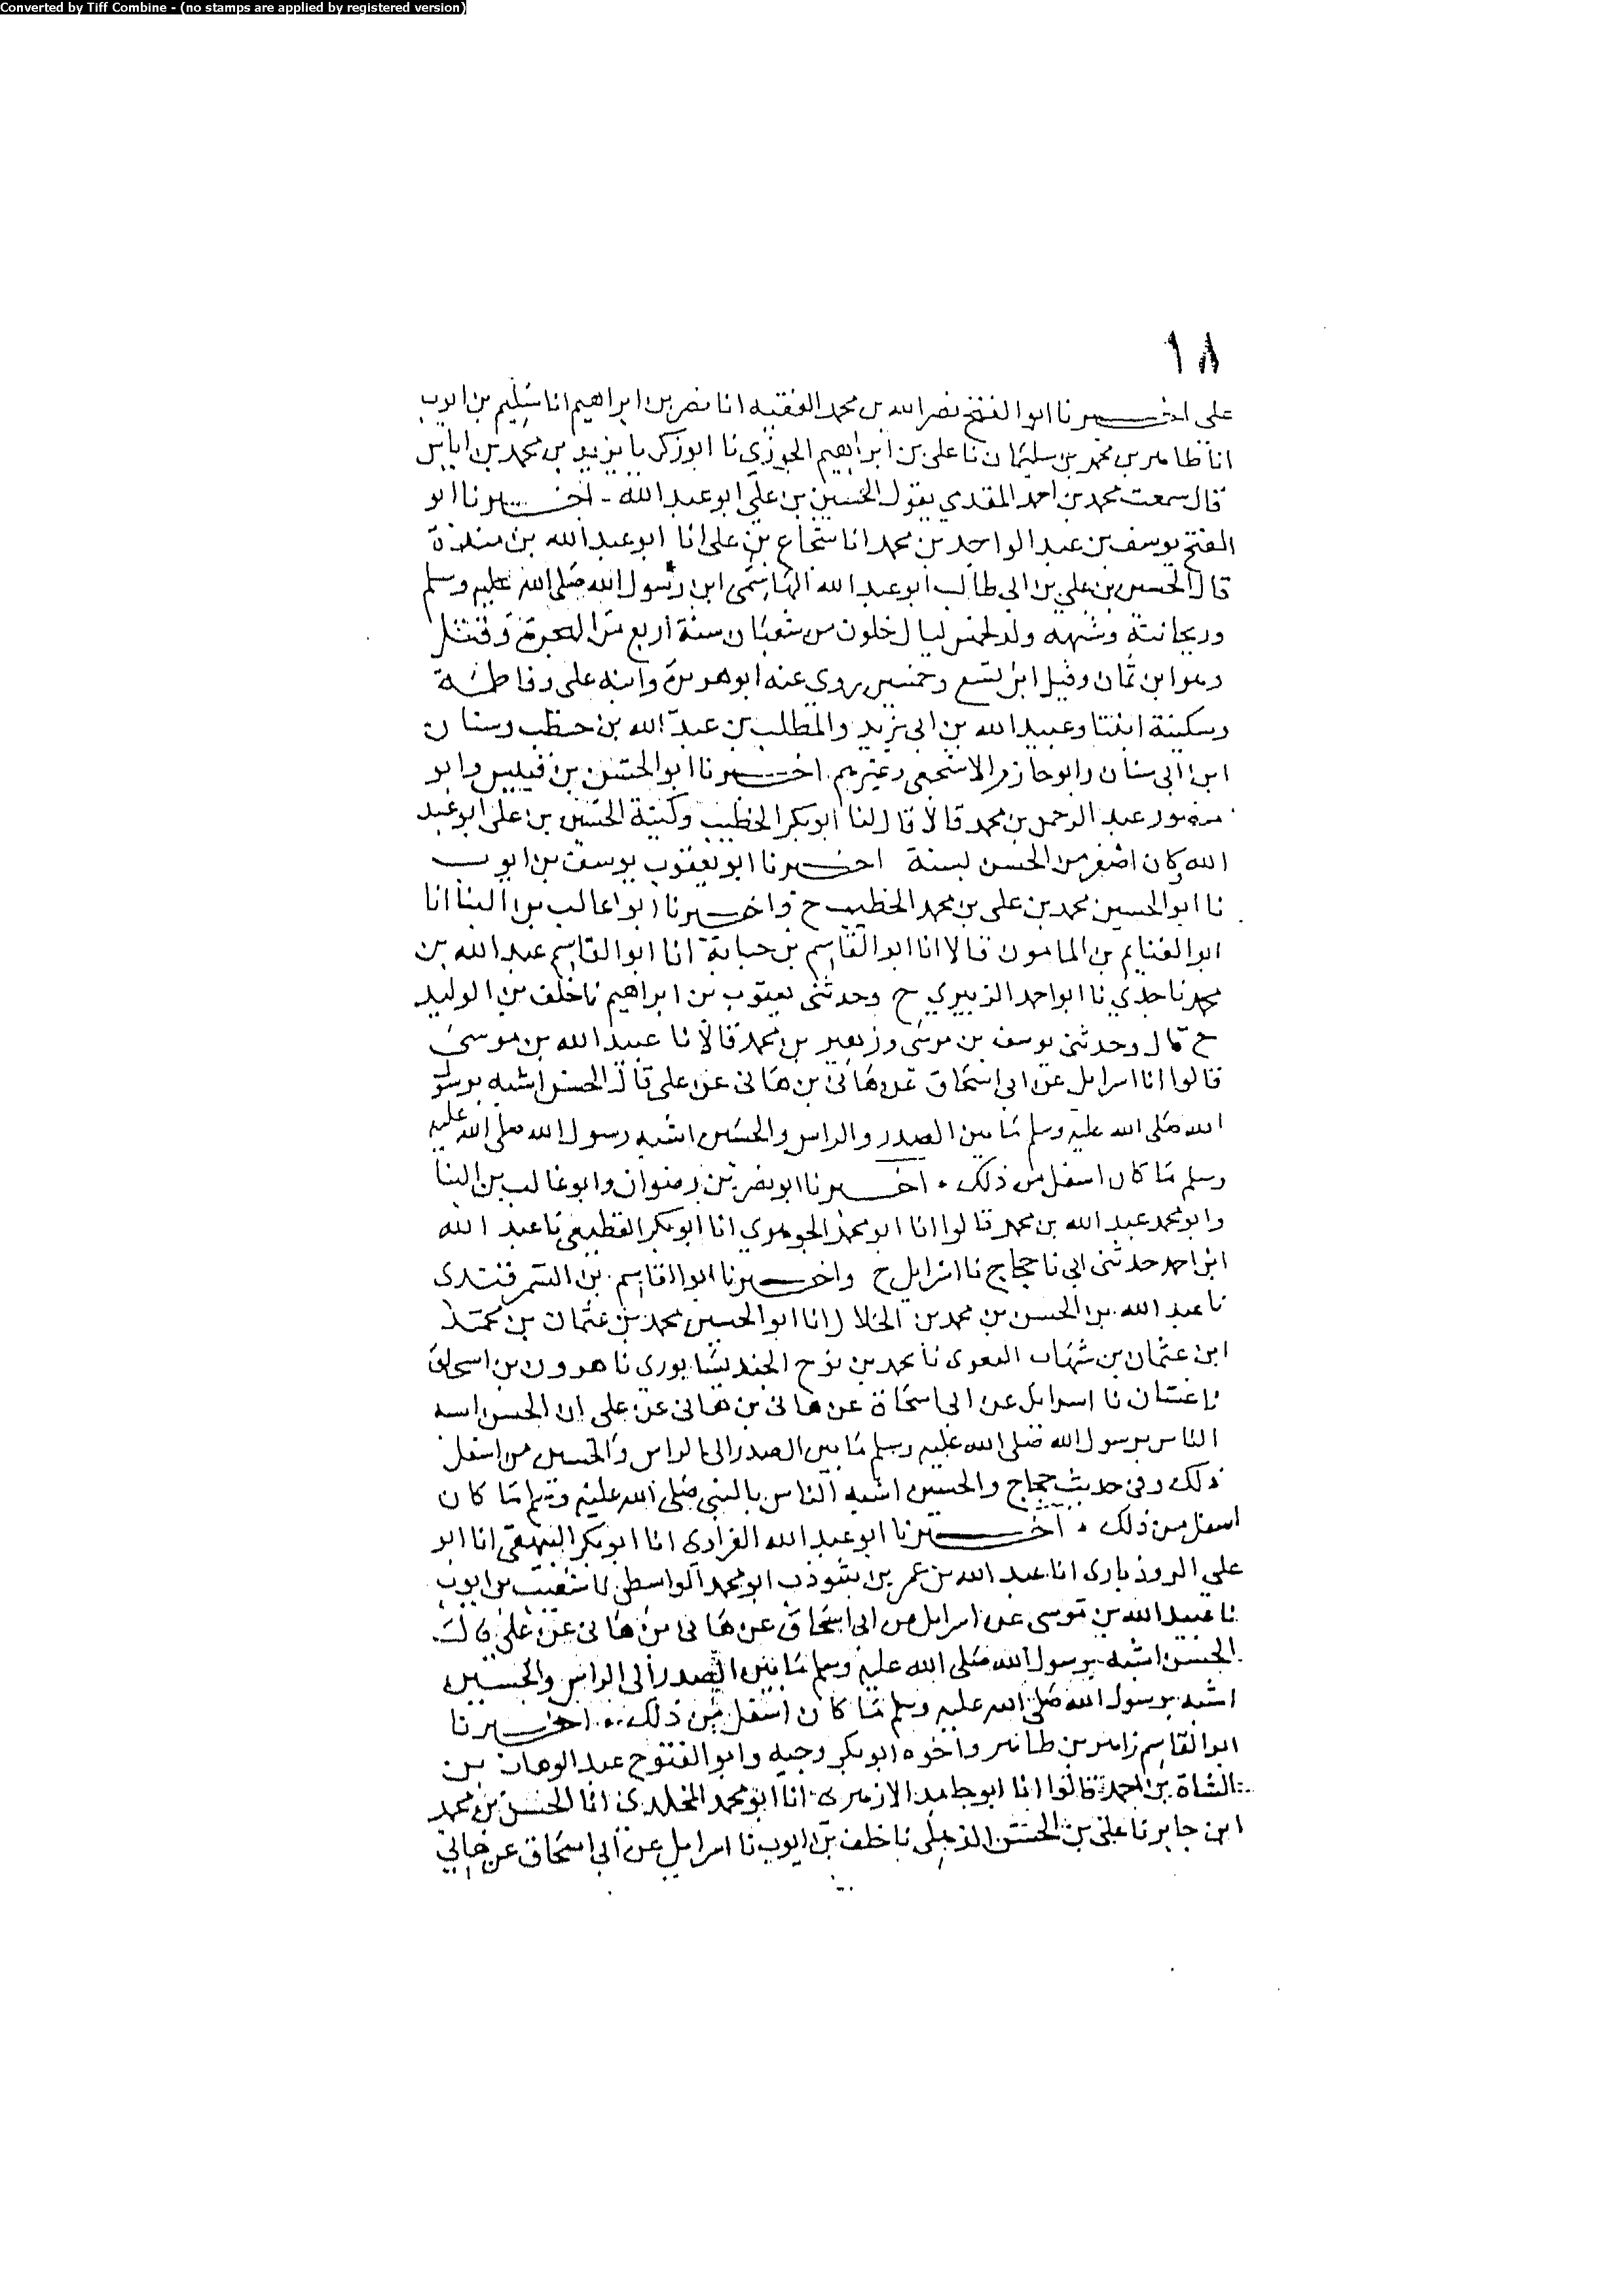 Converted by Tiff Combine - (no stamps are applied by registered version)
١٨
على اخبرنا ابوا لفتح نصر الله بن محمد الفقيه انا نصر بن ابراهيم انا سليم بن ايوب
انا طاهر بن محمد بن سليمان نا على بن ابراهيم الجوزي نا ابوزكريا يزيد بن محمد بن اياس
قال سمعت محمد بن احمد المقدمي يقول الحسين بن على ابو عبد الله - اخبرنا ابو
الفتح يوسف بن عبد الواحد بن محمد انا شجاع بن على انا ابو عبد الله بن مندة
قال الحسين بن علي بن ابى طالب ابو عبد الله الهاشمى ابن رسول الله صلى الله عليه وسلم
وريحانته وشبهه ولد لخمس ليال خلون من شعبان سنة اربع من الهجرة وقتل
وهو ابن ثمان وقيل ابن تسع وخمسين روى عنه ابو هريرة وابنه على وفاطمة
وسكينة ابنتا وعبيد الله بن ابى يزيد والمطلب بن عبد الله بن حنطب وسنان
ابن ابى سنان وابو حازم الاشجعى وغيرهم اخبرنا ابو الحسن بن قبيس وابو
منصور عبد الرحمن بن محمد قالا قال لنا ابو بكر الخطيب وكنية الحسين بن على ابو عبد
الله وكان اصغر من الحسن بسنة اخبرنا ابو يعقوب يوسف بن ايوب
نا ابو الحسين محمد بن على بن محمد الخطيب ح واخبرنا ابوا غالب بن البنا انا
ابوا لغنايم بن المامون قالا انا ابوا لقاسم بن حبابة انا ابوا لقاسم عبد الله بن
محمد نا جدي نا ابو احمد الزبيري ح وحدثنى يعقوب بن ابراهيم نا خلف بن الوليد
ح قال وحدثنى يوسف بن موسى وزهير بن محمد قالا نا عبيد الله بن موسى
قالوا انا اسرايل عن ابى اسحاق عن هانى بن هانى عن على قال الحسن اشبه برسول
الله صلى الله عليه وسلم ما بين الصدر والراس والحسين اشبه رسول الله صلى الله عليه
وسلم ما كان اسفل من ذلك . اخبرنا ابو نصر بن رضوان وابو غالب بن البنا
وابو محمد عبد الله بن محمد قالوا انا ابو محمد الجوهري انا ابو بكر القطيعى نا عبد الله
ابن احمد حدثنى ابى نا حجاج نا اسرايل ح واخبرنا ابوا لقاسم بن السمرقندى
نا عبد الله بن الحسن بن محمد بن الخلال انا ابو الحسين محمد بن عثمان بن محمد
ابن عثمان بن شهاب نا محمد بن نوح الجنديسابورى نا هرون بن اسحاق
نا اسرايل عن ابى اسحاق عن هانى بن هانى عن على ان الحسن اسبه
الناس برسول الله صلى الله عليه وسلم ما بين الصدر الى الراس والحسين من اسفل
ذلك وفى حديث حجاج والحسين اشبه الناس بالنبى صلى الله عليه وسلم ما كان
اسفل من ذلك . اخبرنا ابو عبد الله الفراوى انا ابو بكر البيهقى انا ابو
على الروذبارى انا عبد الله بن عمر بن شوذب ابو محمد الواسطى نا شعيب بن ايوب
نا عبيد الله بن موسى عن اسرايل عن ابى اسحاق عن هانى بن هانى عن على قال
الحسن اشبه برسول الله صلى الله عليه وسلم ما بين الصدر الى الراس والحسين
اشبه برسول الله صلى الله عليه وسلم ما كان اسفل من ذلك .. اخبرنا
ابوا لقاسم زاهر بن طاهر واخوه ابو بكر وجيه وابو الفتوح عبد الوهاب بن
الشاة بن احمد قالوا انا ابو حامد الازهرى انا ابو محمد المخلدى انا الحسن بن محمد
ابن جابر نا على بن الحسن الذهلى نا خلف بن ايوب نا اسرايل عن ابى اسحاق عن هانى